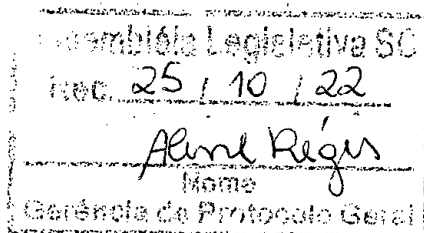 Assembléia Legislativa SC
Rec. 25 / 10 / 22
Aline Régis
Nome
Gerência de Protocolo Geral